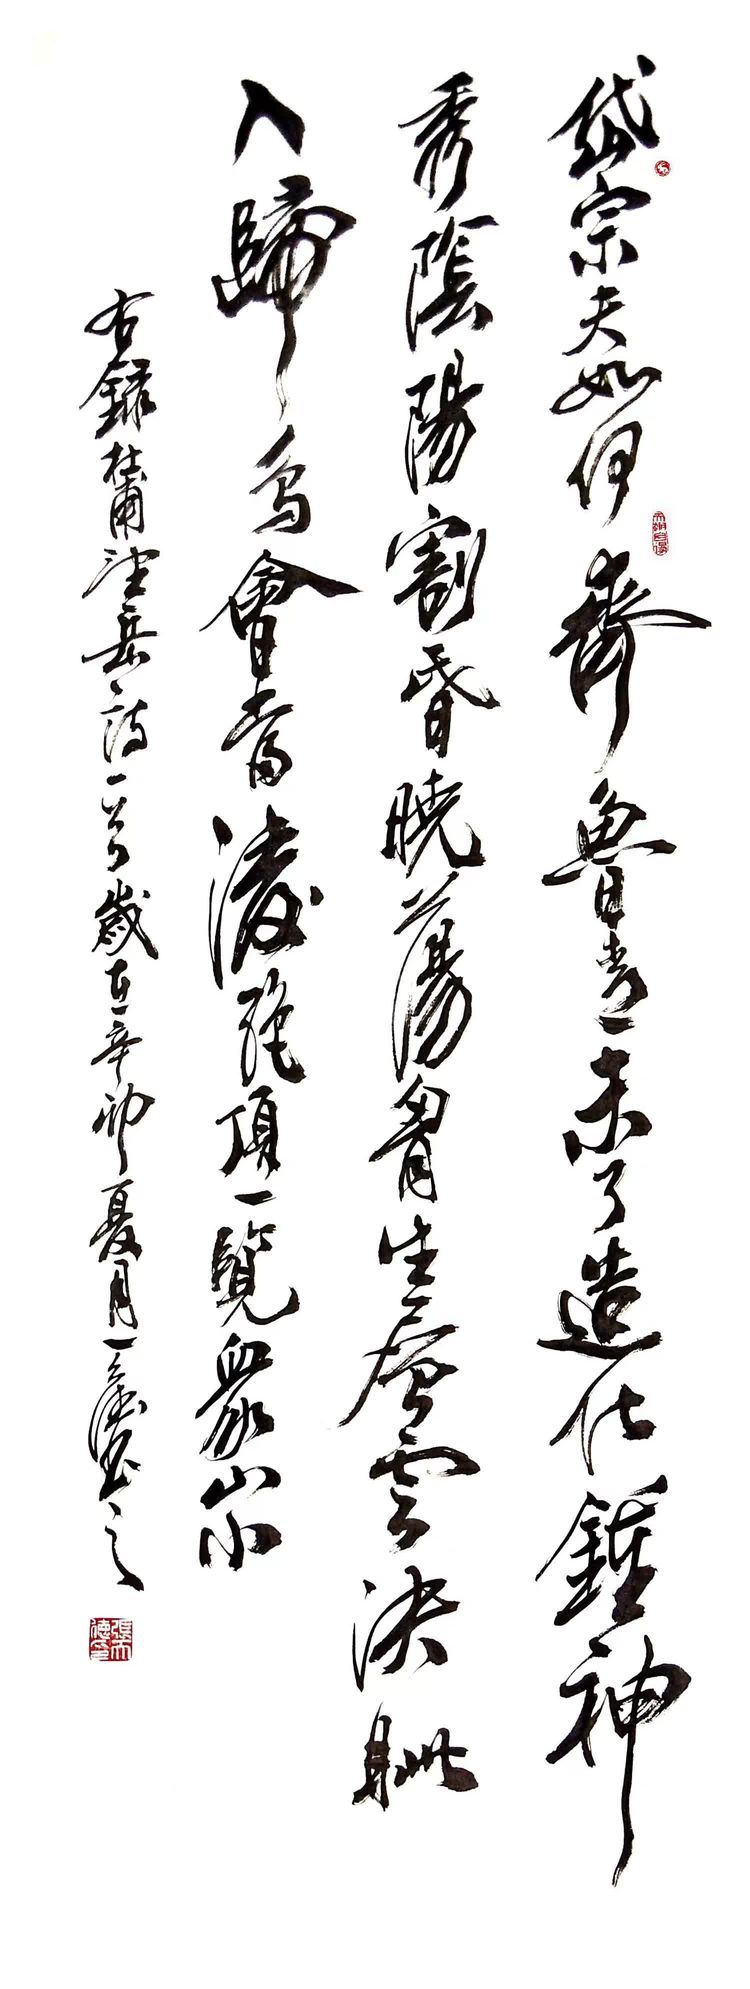 岱宗夫如何齊魯青未了造化鍾神
秀陰陽割昏曉蕩胷生層雲決眦
入歸鳥會當凌絕頂一覽眾山小
右錄杜甫望岳詩一首歲在辛卯夏月